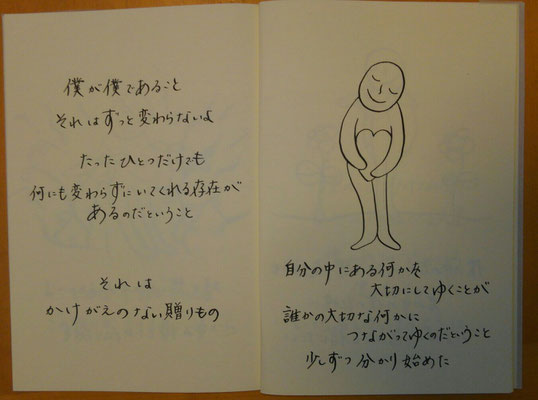 僕が僕であること
それはずっと変わらないよ
たったひとつだけでも
何にも変わらずにいてくれる存在が
あるのだということ
それは
かけがえのない贈りもの
自分の中にある何かを
大切にしてゆくことが
誰かの大切な何かに
つながってゆくのだということ
少しずつ分かり始めた